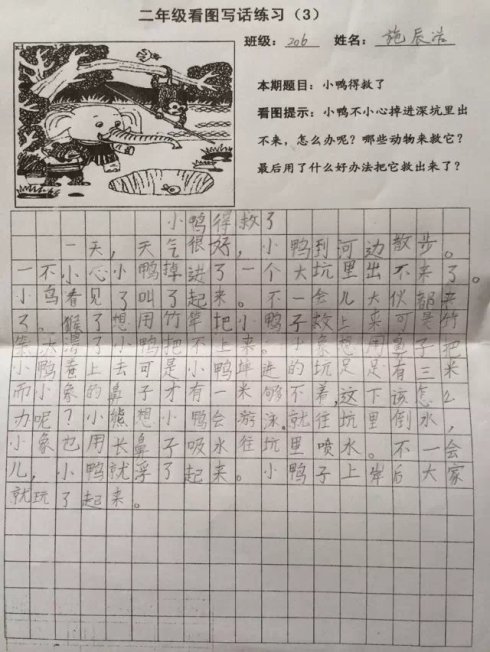 二年级看图写话练习（3）
班级：206 姓名：施辰浩
本期题目：小鸭得救了
看图提示：小鸭不小心掉进深坑里出
不来，怎么办呢？哪些动物来救它？
最后用了什么好办法把它救出来了？
小鸭得救了
一天，天气很好，小鸭到河边散步。
一不小心小鸭掉进了一个大坑里出不来了。
小鸟看见了叫了起来。不一会儿大伙都来
了。猴子想用竹竿把小鸭子救上来可是竹
竿太滑了小鸭把不上来。小象想用鼻子把
小鸭卷上去可是小鸭掉进的坑足足有三米
而小象的鼻子才有一米够不着这下该怎么
办呢？小熊想小鸭会游泳，就往坑里倒水，
小象也用长鼻子吸水往坑里喷水。不一会
儿，小鸭就浮了起来。小鸭子上岸后大家
就玩了起来。